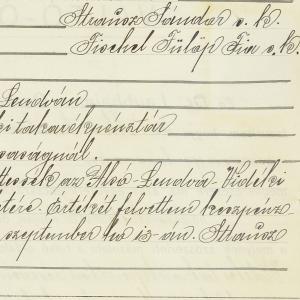 Strausz Sándor s. k.
Fischel Fülöp Fia s. k.
Lendván
ki takarékpénztár
saságnál.
tessék az Alsó-Lendva-Vidéki
tére. Értékét felvettem készpénz-
szeptember hó is-án. Strausz